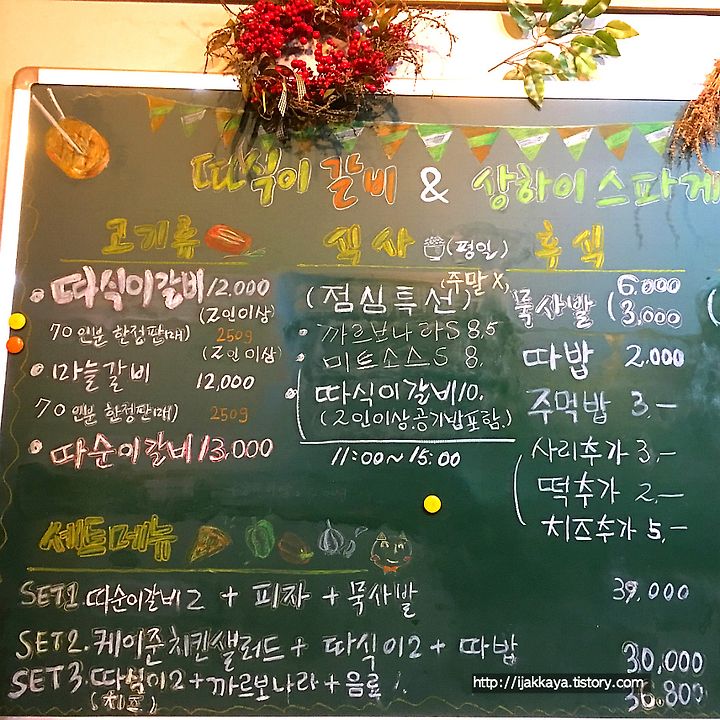 따식이 갈비 & 상하이 스파게
고기류
따식이갈비 12.000
(2인이상)
70인분 한정판매) 250g
(2인 이상)
마늘갈비 12,000
70인분 한정판매) 250g
따순이갈비 13,000
식사 (평일)
(주말 X,
(점심특선)
까르보나라S 8,5
미트소스S 8.
따식이갈비 10.
(2인이상.공기밥포함.)
11:00~15:00
후식
묵사발 ( 6.000
3,000
따밥 2,000
주먹밥 3.-
사리추가 3,-
떡추가 2,-
치즈추가 5,-
세트메뉴
SET1. 따순이갈비2 + 피자 + 묵사발 39,000
SET2. 케이준치킨샐러드 + 따식이2 + 따밥 30,000
SET3. 따식이2 + 까르보나라 + 음료1. 36.800
(치즈)
http://ijakkaya.tistory.com